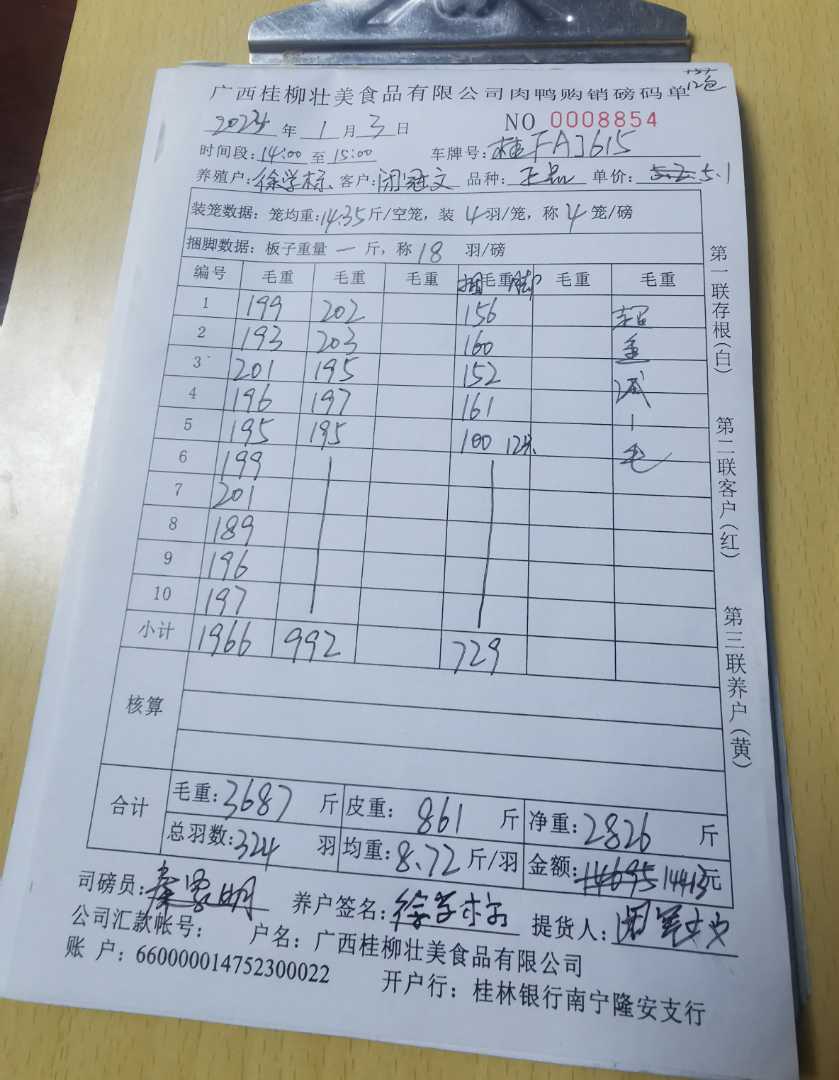 12包
广西桂柳壮美食品有限公司肉鸭购销磅码单
2024 年 1 月 3 日 NO 0008854
时间段: 14:00 至 15:00 车牌号: 桂FA3615
养殖户: 徐学标 客户: 闭冠文 品种: 正品 单价: 5.2 5.1
装笼数据: 笼均重: 14.35 斤/空笼, 装 4 羽/笼, 称 4 笼/磅
捆脚数据: 板子重量 一 斤, 称 18 羽/磅
编号 毛重 毛重 毛重 捆毛重脚 毛重 毛重
1 199 202 156 超
2 193 203 160 重
3 201 195 152 减
4 196 197 161 1
5 195 195 100 12只 毛
6 199
7 201
8 189
9 196
10 197
小计 1966 992 729
核算
合计 毛重: 3687 斤 皮重: 861 斤 净重: 2826 斤
总羽数: 324 羽 均重: 8.72 斤/羽 金额: 14695 14413 元
司磅员: 养户签名: 徐学标 提货人: 闭冠文
公司汇款帐号: 户名: 广西桂柳壮美食品有限公司
账 户: 660000014752300022 开户行: 桂林银行南宁隆安支行
第一联存根(白) 第二联客户(红) 第三联养户(黄)